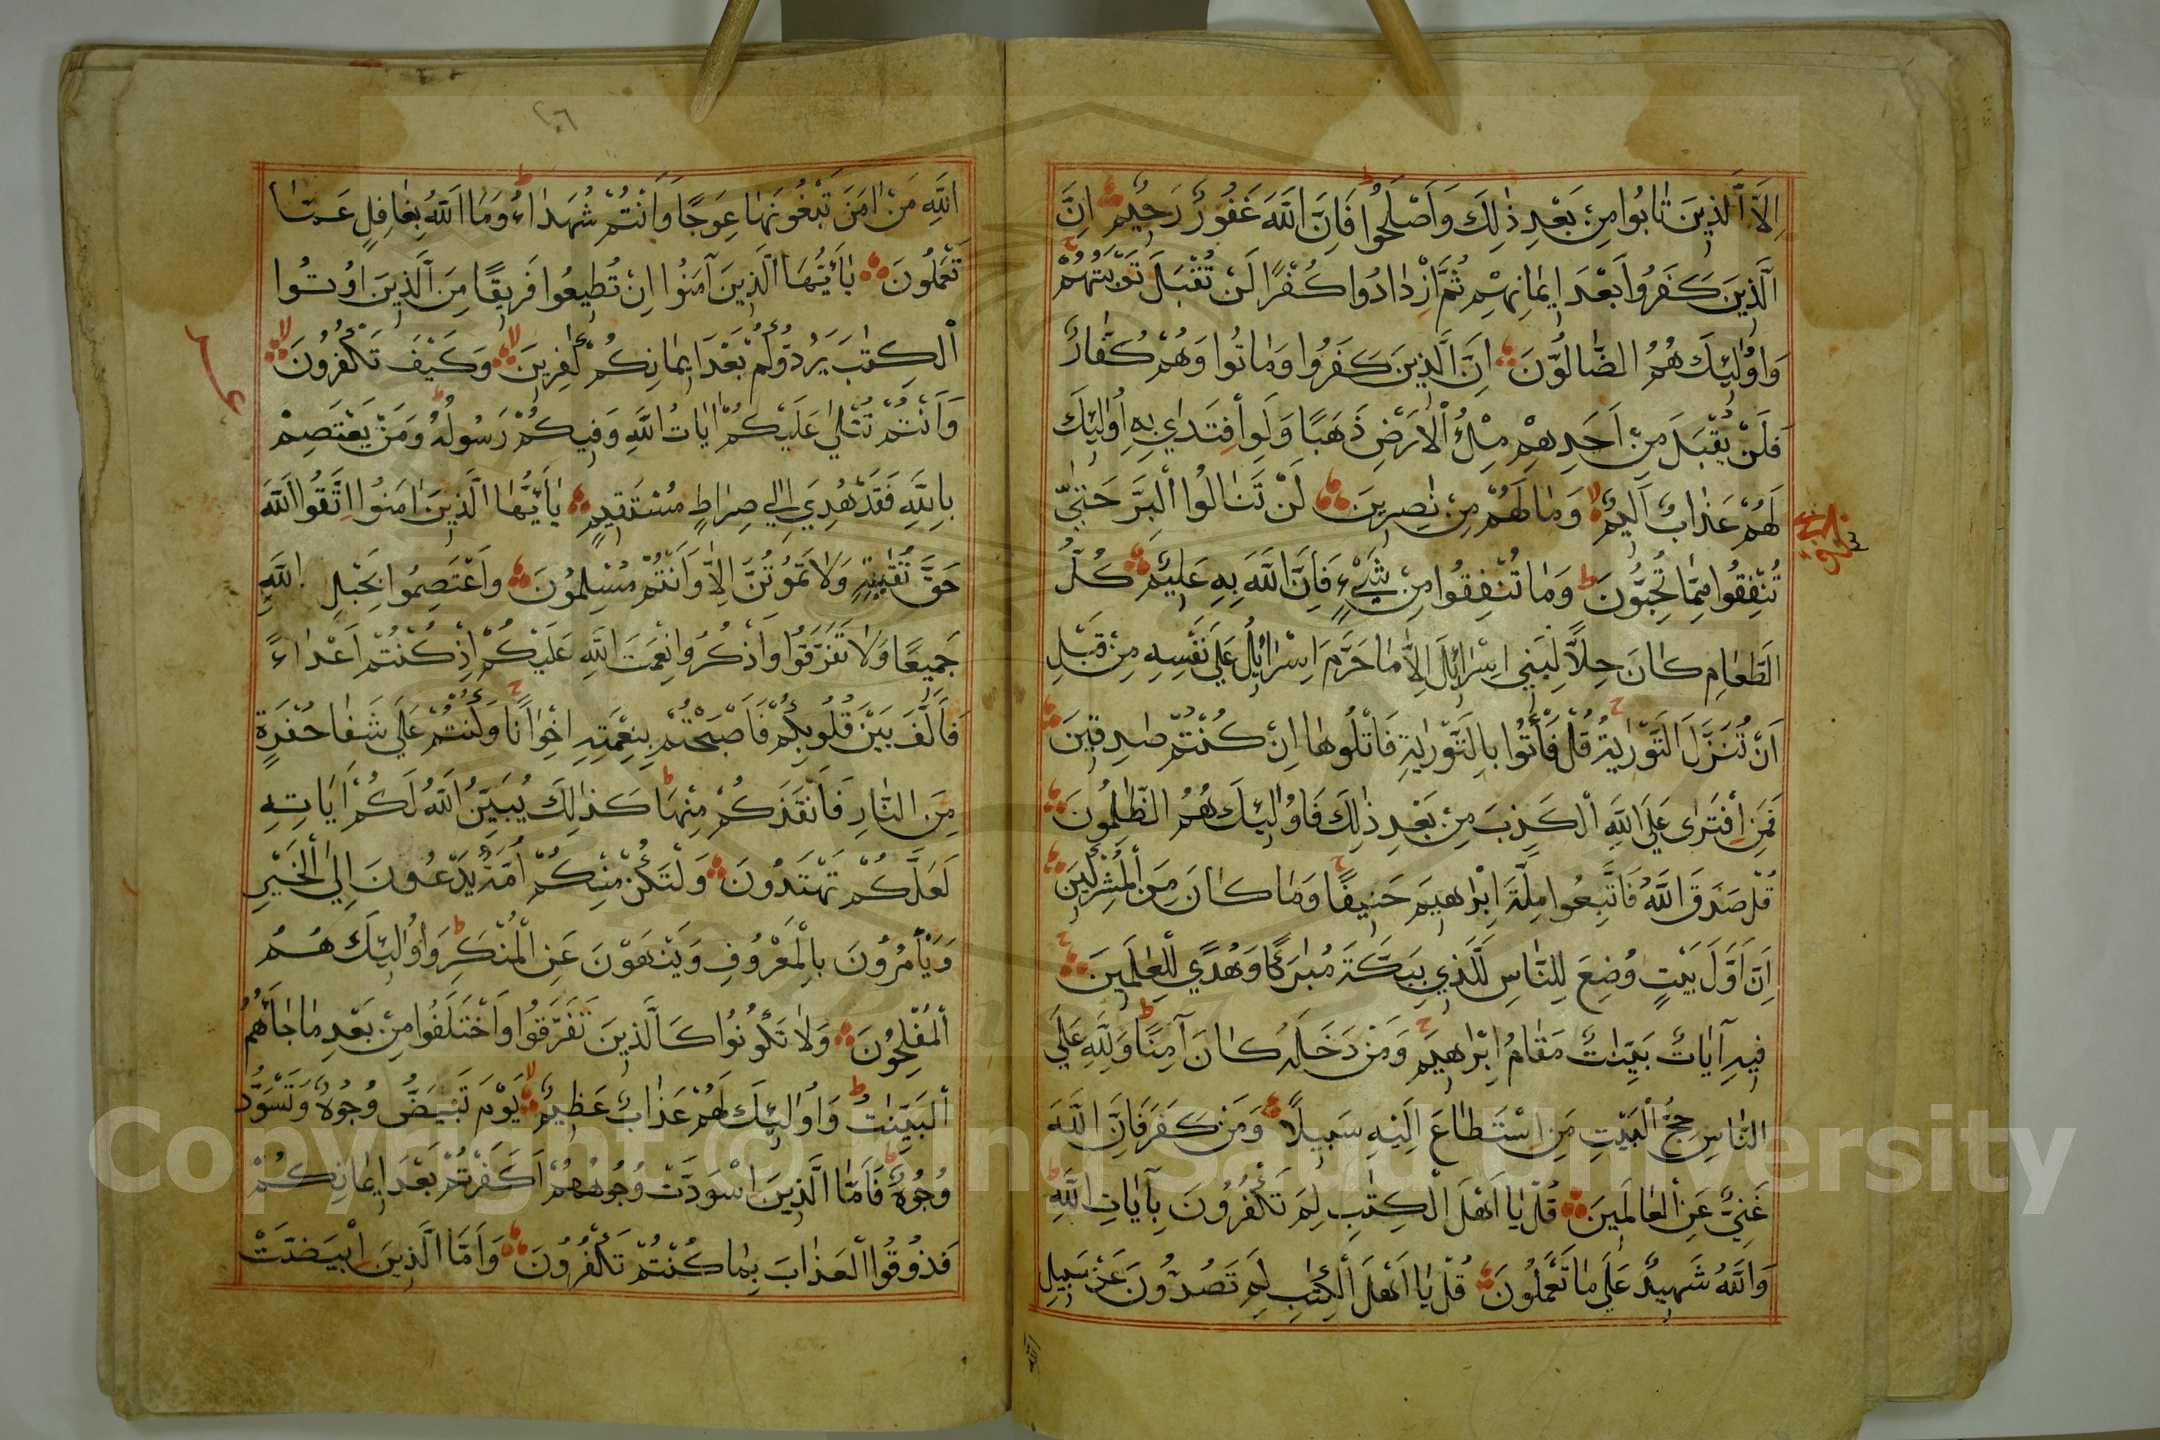 اِلَّا الَّذِينَ تَابُوا مِنْ بَعْدِ ذٰلِكَ وَاَصْلَحُوا فَاِنَّ اللّٰهَ غَفُورٌ رَحِيمٌ اِنَّ
الَّذِينَ كَفَرُوا بَعْدَ اِيمَانِهِمْ ثُمَّ ازْدَادُوا كُفْرًا لَنْ تُقْبَلَ تَوْبَتُهُمْ
وَاُولٰئِكَ هُمُ الضَّالُّونَ اِنَّ الَّذِينَ كَفَرُوا وَمَاتُوا وَهُمْ كُفَّارٌ
فَلَنْ يُقْبَلَ مِنْ اَحَدِهِمْ مِلْءُ الْاَرْضِ ذَهَبًا وَلَوِ افْتَدٰي بِهِ اُولٰئِكَ
لَهُمْ عَذَابٌ اَلِيمٌ وَمَا لَهُمْ مِنْ نٰصِرِينَ لَنْ تَنَالُوا الْبِرَّ حَتّٰي
تُنْفِقُوا مِمَّا تُحِبُّونَ وَمَا تُنْفِقُوا مِنْ شَيْءٍ فَاِنَّ اللّٰهَ بِهِ عَلِيمٌ كُلُّ
الطَّعَامِ كَانَ حِلًّا لِبَنِي اِسْرَائِلَ اِلَّا مَا حَرَّمَ اِسْرَائِلُ عَلٰي نَفْسِهِ مِنْ قَبْلِ
اَنْ تُنَزَّلَ التَّوْرٰيةُ قُلْ فَأْتُوا بِالتَّوْرٰيةِ فَاتْلُوهَا اِنْ كُنْتُمْ صٰدِقِينَ
فَمَنِ افْتَرٰى عَلَي اللّٰهِ الْكَذِبَ مِنْ بَعْدِ ذٰلِكَ فَاُولٰئِكَ هُمُ الظّٰلِمُونَ
قُلْ صَدَقَ اللّٰهُ فَاتَّبِعُوا مِلَّةَ اِبْرٰهِيمَ حَنِيفًا وَمَا كَانَ مِنَ الْمُشْرِكِينَ
اِنَّ اَوَّلَ بَيْتٍ وُضِعَ لِلنَّاسِ لَلَّذِي بِبَكَّةَ مُبٰرَكًا وَهُدًي لِلْعٰلَمِينَ
فِيهِ آيَاتٌ بَيِّنَاتٌ مَقَامُ اِبْرٰهِيمَ وَمَنْ دَخَلَهُ كَانَ آمِنًا وَلِلّٰهِ عَلَي
النَّاسِ حِجُّ الْبَيْتِ مَنِ اسْتَطَاعَ اِلَيْهِ سَبِيلًا وَمَنْ كَفَرَ فَاِنَّ اللّٰهَ
غَنِيٌّ عَنِ الْعَالَمِينَ قُلْ يَا اَهْلَ الْكِتٰبِ لِمَ تَكْفُرُونَ بِآيَاتِ اللّٰهِ
وَاللّٰهُ شَهِيدٌ عَلٰي مَا تَعْمَلُونَ قُلْ يَا اَهْلَ الْكِتٰبِ لِمَ تَصُدُّونَ عَنْ سَبِيلِ
اللّٰه
٢٠٦
اللّٰهِ مَنْ اٰمَنَ تَبْغُونَهَا عِوَجًا وَاَنْتُمْ شُهَدَاءُ وَمَا اللّٰهُ بِغَافِلٍ عَمَّا
تَعْمَلُونَ يَا اَيُّهَا الَّذِينَ آمَنُوا اِنْ تُطِيعُوا فَرِيقًا مِنَ الَّذِينَ اُوتُوا
الْكِتٰبَ يَرُدُّوكُمْ بَعْدَ اِيمَانِكُمْ كٰفِرِينَ وَكَيْفَ تَكْفُرُونَ
وَاَنْتُمْ تُتْلٰي عَلَيْكُمْ اٰيَاتُ اللّٰهِ وَفِيكُمْ رَسُولُهُ وَمَنْ يَعْتَصِمْ
بِاللّٰهِ فَقَدْ هُدِيَ اِلٰي صِرَاطٍ مُسْتَقِيمٍ يَا اَيُّهَا الَّذِينَ اٰمَنُوا اتَّقُوا اللّٰهَ
حَقَّ تُقٰيتِهِ وَلَا تَمُوتُنَّ اِلَّا وَاَنْتُمْ مُسْلِمُونَ وَاعْتَصِمُوا بِحَبْلِ اللّٰهِ
جَمِيعًا وَلَا تَفَرَّقُوا وَاذْكُرُوا نِعْمَتَ اللّٰهِ عَلَيْكُمْ اِذْ كُنْتُمْ اَعْدَاءً
فَاَلَّفَ بَيْنَ قُلُوبِكُمْ فَاَصْبَحْتُمْ بِنِعْمَتِهِ اِخْوَانًا وَكُنْتُمْ عَلٰي شَفَا حُفْرَةٍ
مِنَ النَّارِ فَاَنْقَذَكُمْ مِنْهَا كَذٰلِكَ يُبَيِّنُ اللّٰهُ لَكُمْ اٰيَاتِهِ
لَعَلَّكُمْ تَهْتَدُونَ وَلْتَكُنْ مِنْكُمْ اُمَّةٌ يَدْعُونَ اِلَي الْخَيْرِ
وَيَأْمُرُونَ بِالْمَعْرُوفِ وَيَنْهَوْنَ عَنِ الْمُنْكَرِ وَاُولٰئِكَ هُمُ
الْمُفْلِحُونَ وَلَا تَكُونُوا كَالَّذِينَ تَفَرَّقُوا وَاخْتَلَفُوا مِنْ بَعْدِ مَا جَاءَهُمُ
الْبَيِّنٰتُ وَاُولٰئِكَ لَهُمْ عَذَابٌ عَظِيمٌ يَوْمَ تَبْيَضُّ وُجُوهٌ وَتَسْوَدُّ
وُجُوهٌ فَاَمَّا الَّذِينَ اسْوَدَّتْ وُجُوهُهُمْ اَكَفَرْتُمْ بَعْدَ اِيمَانِكُمْ
فَذُوقُوا الْعَذَابَ بِمَا كُنْتُمْ تَكْفُرُونَ وَاَمَّا الَّذِينَ ابْيَضَّتْ
Copyright © King Saud University